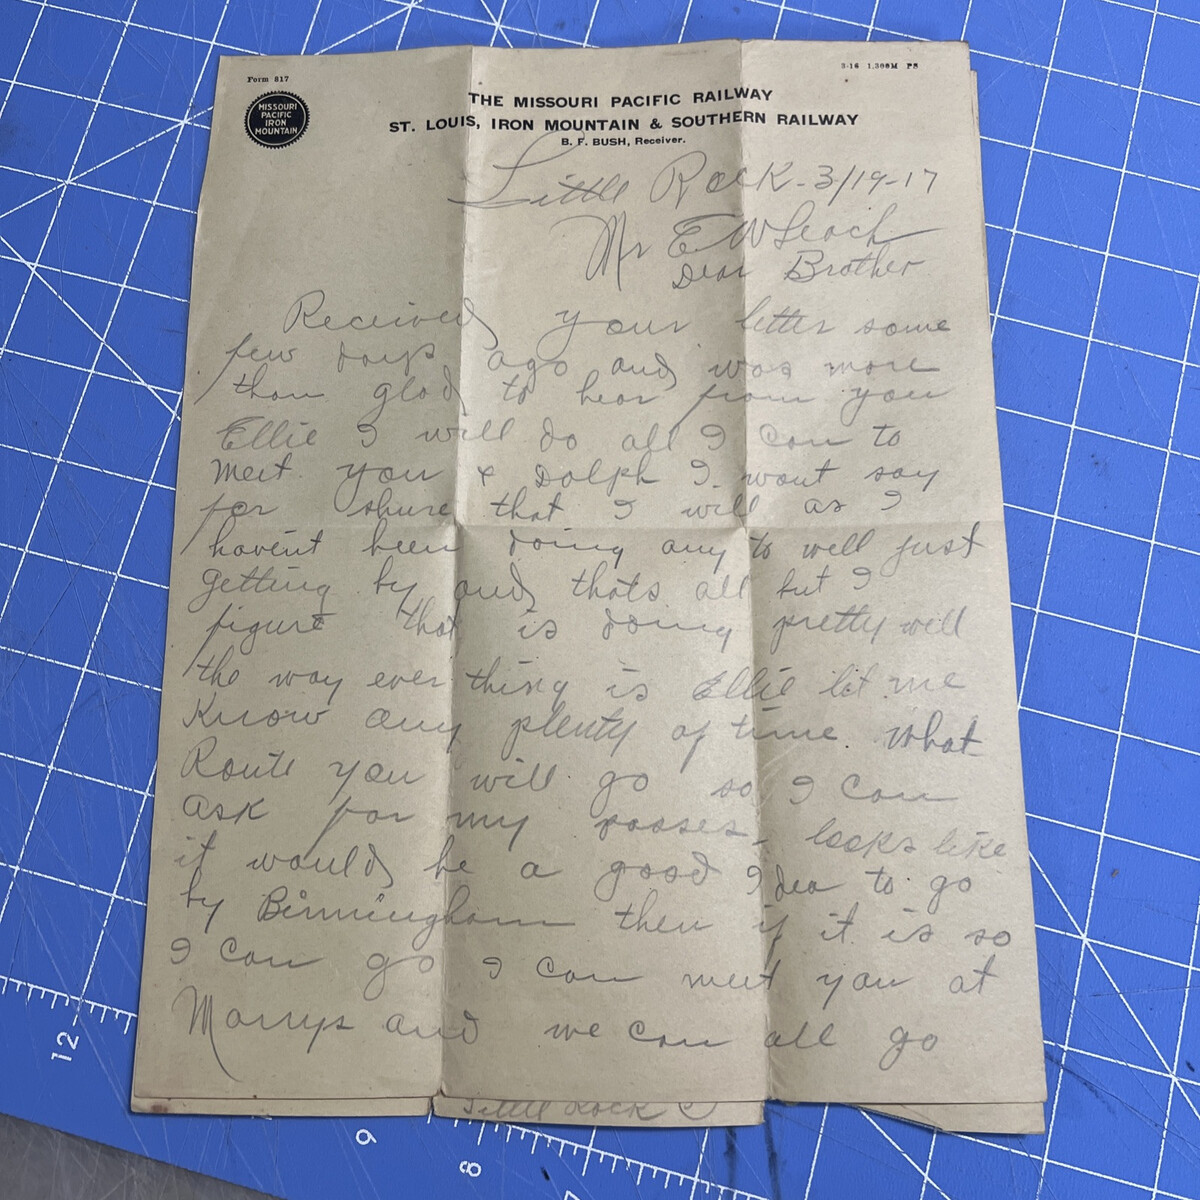 Form 817
3-16 1,300M PS
MISSOURI
PACIFIC
IRON
MOUNTAIN
THE MISSOURI PACIFIC RAILWAY
ST. LOUIS, IRON MOUNTAIN & SOUTHERN RAILWAY
B. F. BUSH, Receiver.
Little Rock - 3/19-17
Mr E W Leach
Dear Brother
Received your letter some
few days ago and was more
than glad to hear from you
Ellie I will do all I can to
meet you & Dolph I wont say
for shure that I will as I
havent been doing any to well just
getting by and thats all but I
figure that is doing pretty well
the way ever thing is Ellie let me
Know any plenty of time what
Route you will go so I can
ask for my passes, looks like
it would be a good Idea to go
by Birmingham then if it is so
I can go I can meet you at
and we can all go
Little Rock
12
9
8
7